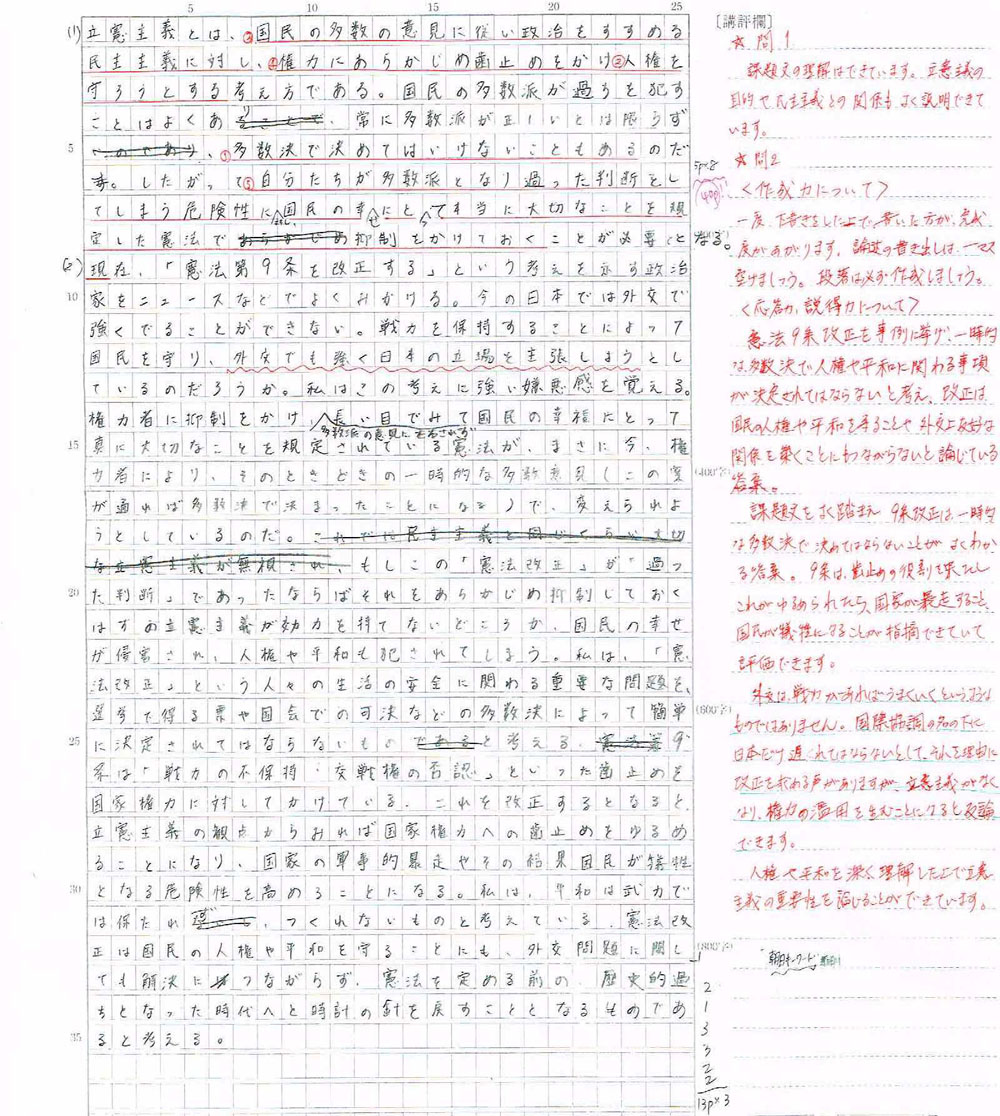 5 10 15 20 25
(1) 立憲主義とは、③国民の多数の意見に従い政治をすすめる
民主主義に対し、④権力にあらかじめ歯止めをかけ②人権を
守ろうとする考え方である。国民の多数派が過ちを犯す
ことはよくあり、常に多数派が正しいとは限らず
5 、①多数決で決めてはいけないこともあるのだ
。したがって⑤自分たちが多数派となり過った判断をし
てしまう危険性に国民の幸せにとって本当に大切なことを規
定した憲法で抑制をかけておくことが必要となる。
(2) 現在、「憲法第9条を改正する」という考えを示す政治
10 家をニュースなどでよくみかける。今の日本では外交で
強くでることができない。戦力を保持することによって
国民を守り、外交でも強く日本の立場を主張しようとし
ているのだろうか。私はこの考えに強い嫌悪感を覚える。
権力者に抑制をかけ、長い目でみて国民の幸福にとって
多数派の意見に左右されず
15 真に大切なことを規定されている憲法が、まさに今、権
力者により、そのときどきの一時的な多数意見(この案
が通れば多数決で決まったことになる)で、変えられよ
うとしているのだ。これでは民主主義と同じくらい大切
な立憲主義が無視され、もしこの「憲法改正」が「過っ
20 た判断」であったならばそれをあらかじめ抑制しておく
はずの立憲主義が効力を持てないどころか、国民の幸せ
が侵害され、人権や平和も犯されてしまう。私は、「憲
法改正」という人々の生活の安全に関わる重要な問題を、
選挙で得る票や国会での可決などの多数決によって簡単
25 に決定されてはならないものと考える。9
条は「戦力の不保持・交戦権の否認」といった歯止めを
国家権力に対してかけている。これを改正するとなると、
立憲主義の観点からおれば国家権力への歯止めをゆるめ
ることになり、国家の軍事的暴走やその結果国民が犠牲
30 となる危険性を高めることになる。私は、平和は武力で
は保たれず、つくれないものと考えている。憲法改
正は国民の人権や平和を守ることにも、外交問題に関し
ても解決につながらず、憲法を定める前の、歴史的過
ちとなった時代へと時計の針を戻すこととなるものであ
35 ると考える。
(400字)
(600字)
(800字)
5p×8
40p
[講評欄]
☆問1
課題文の理解はできています。立憲主義の
目的や民主主義との関係も、よく説明できて
います。
☆問2
<作成力について>
一度、下書きをした上で、書いた方が、完成
度があがります。論述の書き出しは、一マス
空けましょう。段落は必ず作成しましょう。
<応答力、説得力について>
憲法9条改正を事例に挙げ、一時的
な多数決で人権や平和に関わる事項
が決定されてはならないと考え、改正は
国民の人権や平和を守ることや外交上良好な
関係を築くことにつながらないと論じている
答案。
課題文をよく踏まえ、9条改正は、一時的
な多数決で決めてはならないことがよくわか
る答案。9条は、歯止めの役割を果たし
これがゆるめられたら、国家が暴走すること、
国民が犠牲になることが指摘できていて
評価できます。
外交は、戦力があればうまくいくというような
ものではありません。国際協調の名の下に
日本だけ遅れてはならないとして、それを理由に
改正を求める声がありますが、立憲主義がなく
なり、権力の濫用を生むことになると反論
できます。
人権や平和を深く理解した上で立憲
主義の重要性を論じることができています。
朝日キーワード
2
1
3
3
2
2
13p×3